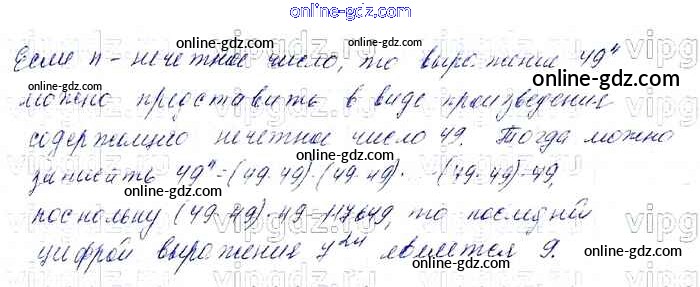 online-gdz.com
Если n - нечетное число, то выражение 49ⁿ
можно представить в виде произведения
содержащего нечетное число 49. Тогда можно
записать 49ⁿ=(49·49)·(49·49)· -(49·49)·49,
поскольку (49·49)·49=117649, то последней
цифрой выражения является 9.
online-gdz.com
online-gdz.com
online-gdz.com
online-gdz.com
online-gdz.com
online-gdz.com
online-gdz.com
online-gdz.com
online-gdz.com
online-gdz.com
online-gdz.com